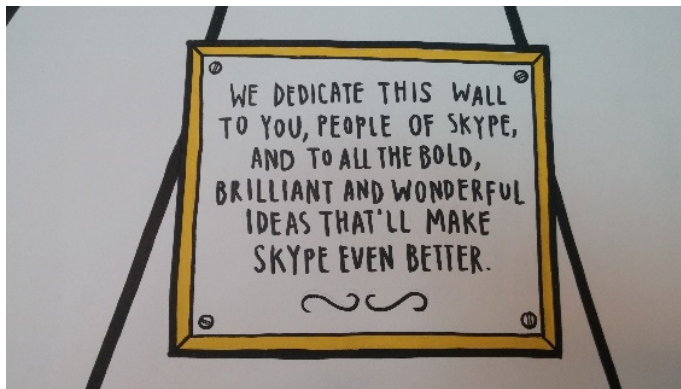 WE DEDICATE THIS WALL
TO YOU, PEOPLE OF SKYPE,
AND TO ALL THE BOLD,
BRILLIANT AND WONDERFUL
IDEAS THAT'LL MAKE
SKYPE EVEN BETTER.